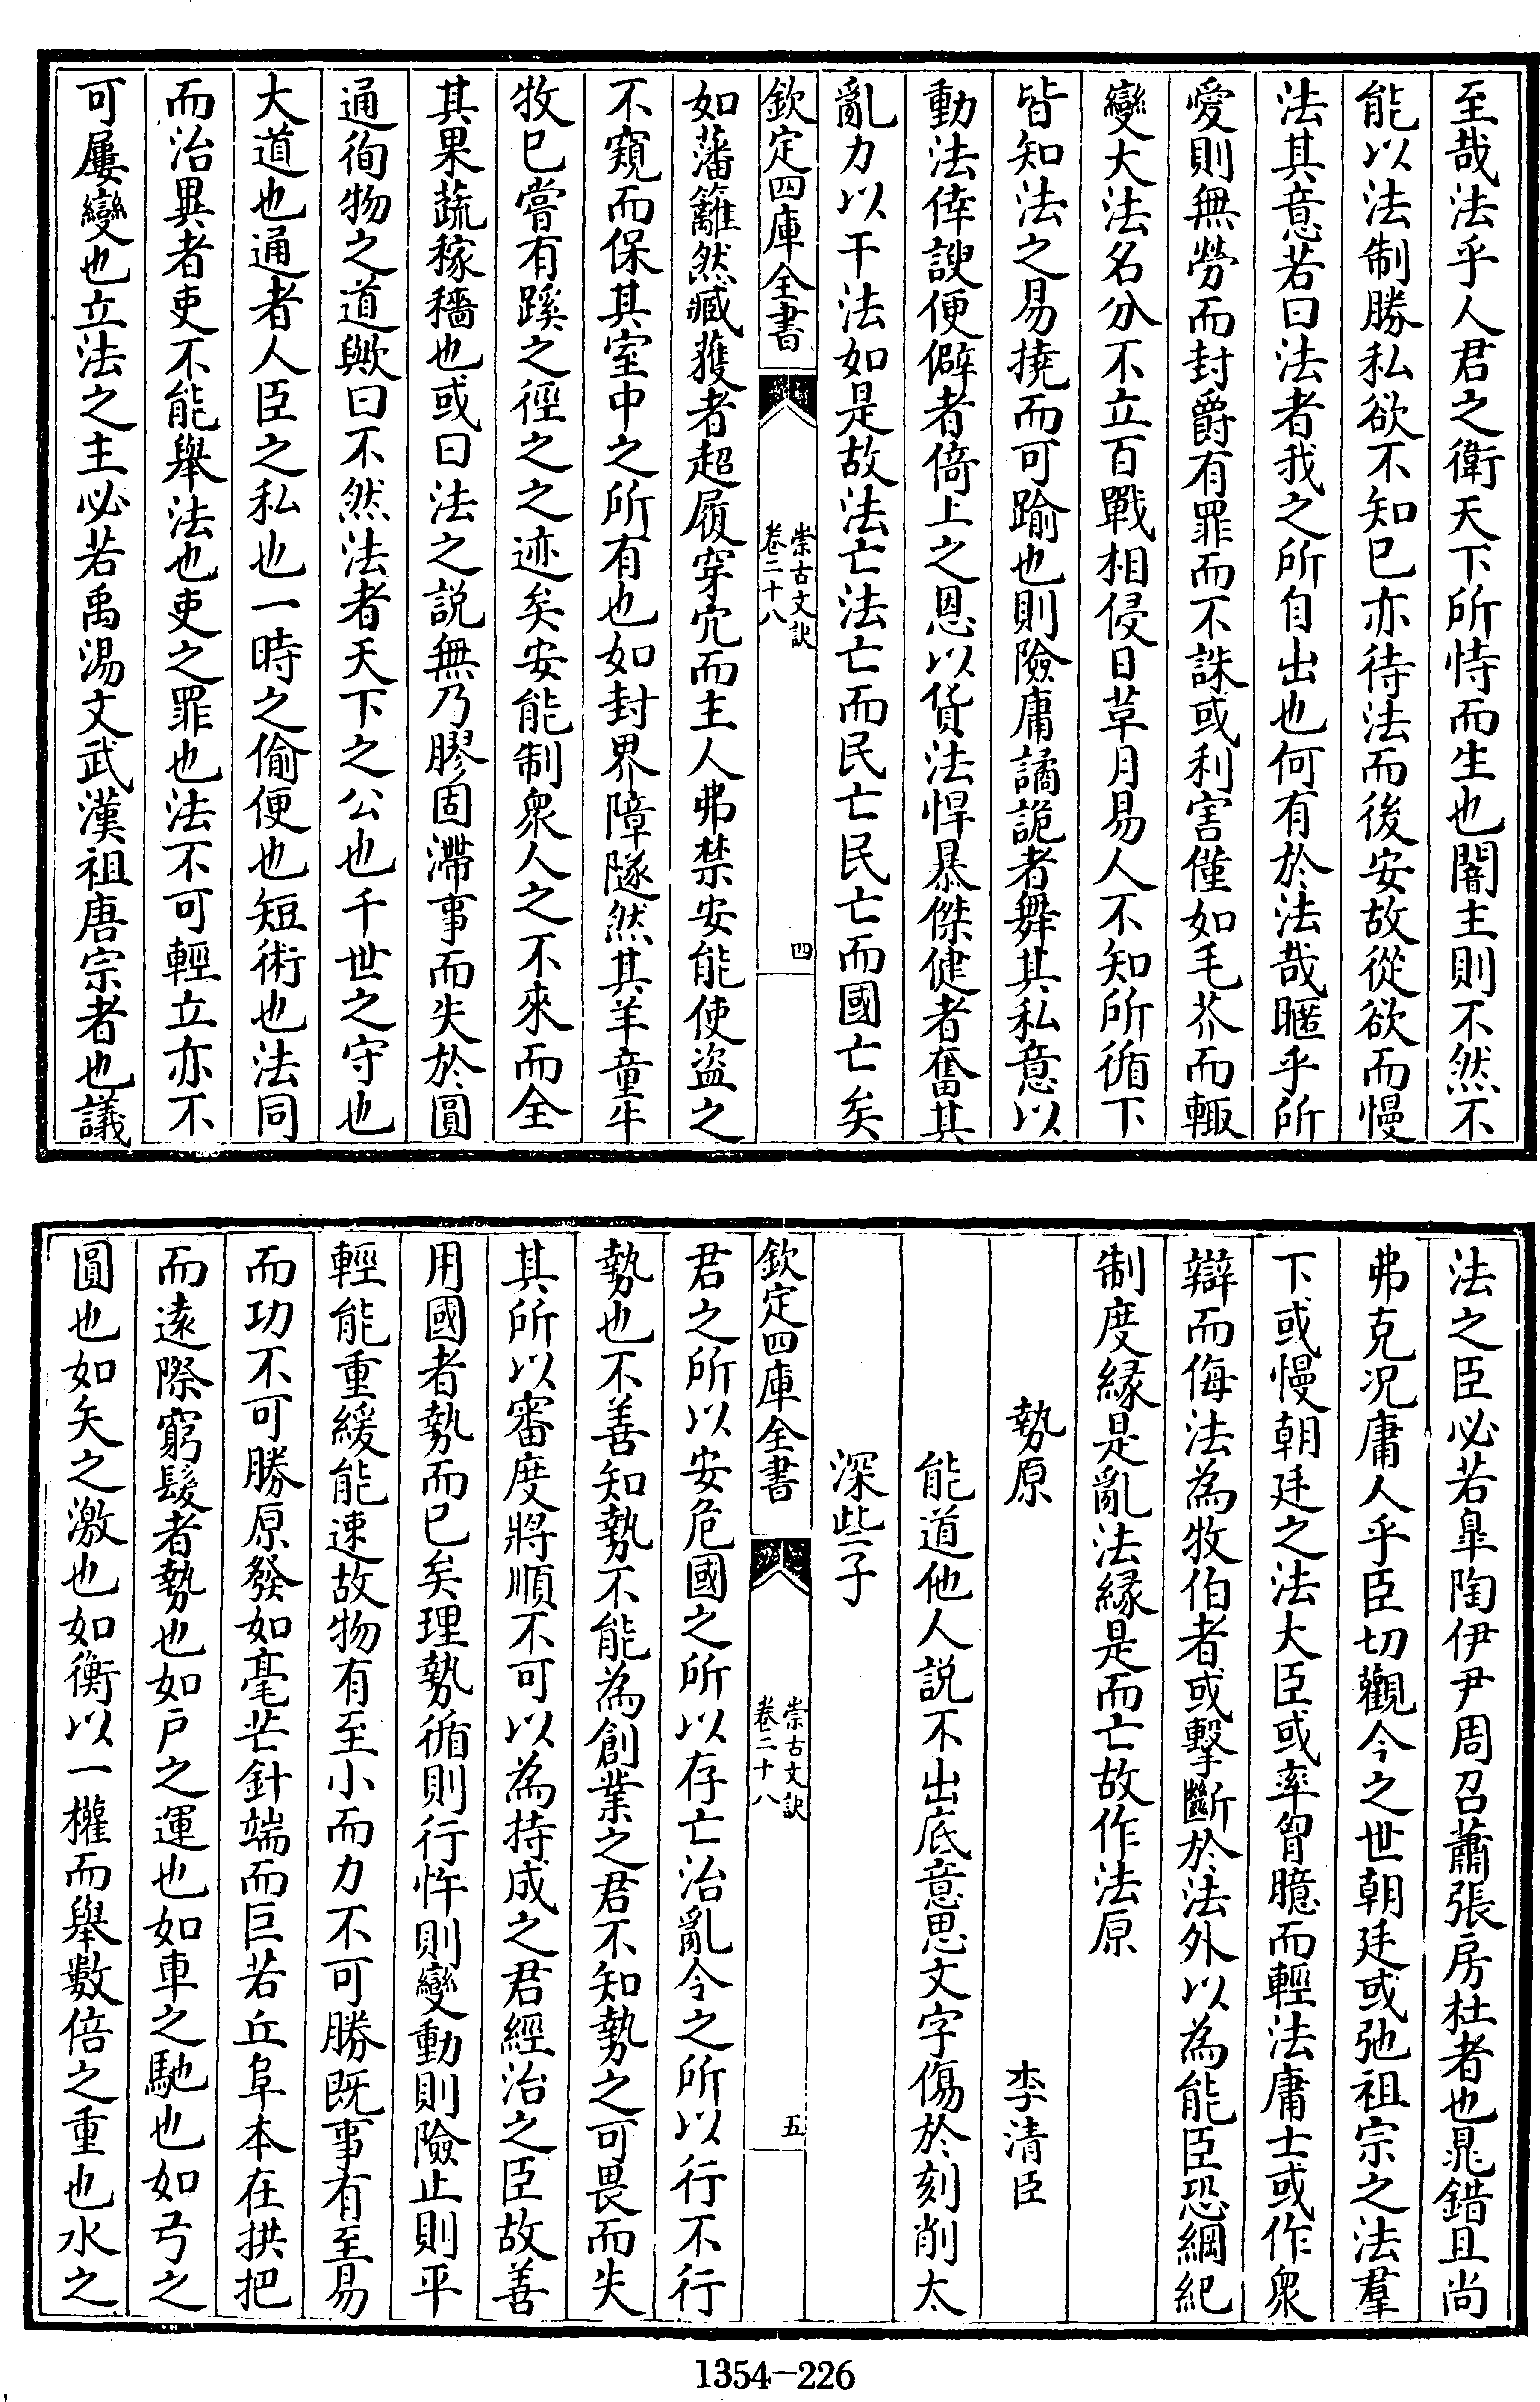 至哉法乎人君之衛天下所恃而生也闇主則不然不
能以法制勝私欲不知已亦待法而後安故從欲而慢
法其意若曰法者我之所自出也何有於法哉暱乎所
愛則無勞而封爵有罪而不誅或利害僅如毛芥而輒
變大法名分不立百戰相侵日草月易人不知所循下
皆知法之易撓而可踰也則險庸譎詭者舞其私意以
動法倖謏便僻者倚上之恩以貨法悍暴傑健者奮其
亂力以干法如是故法亡法亡而民亡民亡而國亡矣
欽定四庫全書
崇古文訣
卷二十八
四
如藩籬然臧獲者超履穿穴而主人弗禁安能使盜之
不窺而保其室中之所有也如封界障隧然其羊童牛
牧已嘗有蹊之徑之之迹矣安能制衆人之不來而全
其果蔬稼穡也或曰法之說無乃膠固滯事而失於圓
通徇物之道歟曰不然法者天下之公也千世之守也
大道也通者人臣之私也一時之偷便也短術也法同
而治異者吏不能舉法也吏之罪也法不可輕立亦不
可屢變也立法之主必若禹湯文武漢祖唐宗者也議
法之臣必若臯陶伊尹周召蕭張房杜者也晁錯且尚
弗克况庸人乎臣切觀今之世朝廷或弛祖宗之法羣
下或慢朝廷之法大臣或率胷臆而輕法庸士或作衆
辯而侮法為牧伯者或擊斷於法外以為能臣恐綱紀
制度緣是亂法緣是而亡故作法原
勢原
李清臣
能道他人說不出底意思文字傷於刻削太
深些子
欽定四庫全書
崇古文訣
卷二十八
五
君之所以安危國之所以存亡治亂令之所以行不行
勢也不善知勢不能為創業之君不知勢之可畏而失
其所以審度將順不可以為持成之君經治之臣故善
用國者勢而已矣理勢循則行忤則變動則險止則平
輕能重緩能速故物有至小而力不可勝既事有至易
而功不可勝原發如毫芒針端而巨若丘阜本在拱把
而遠際窮髮者勢也如戶之運也如車之馳也如弓之
圓也如矢之激也如衡以一權而舉數倍之重也水之
1354-226